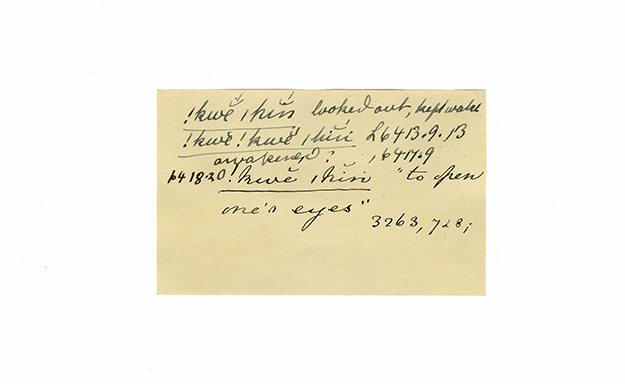 !kwĕ́ ǀhiń looked out, kept watch
!kwĕ !kwĕ́ ǀhiń L 6413.9.13
awakened? , 6417.9
6418.20 !kwĕ ǀhin "to open
one's eyes"
3263, 728;